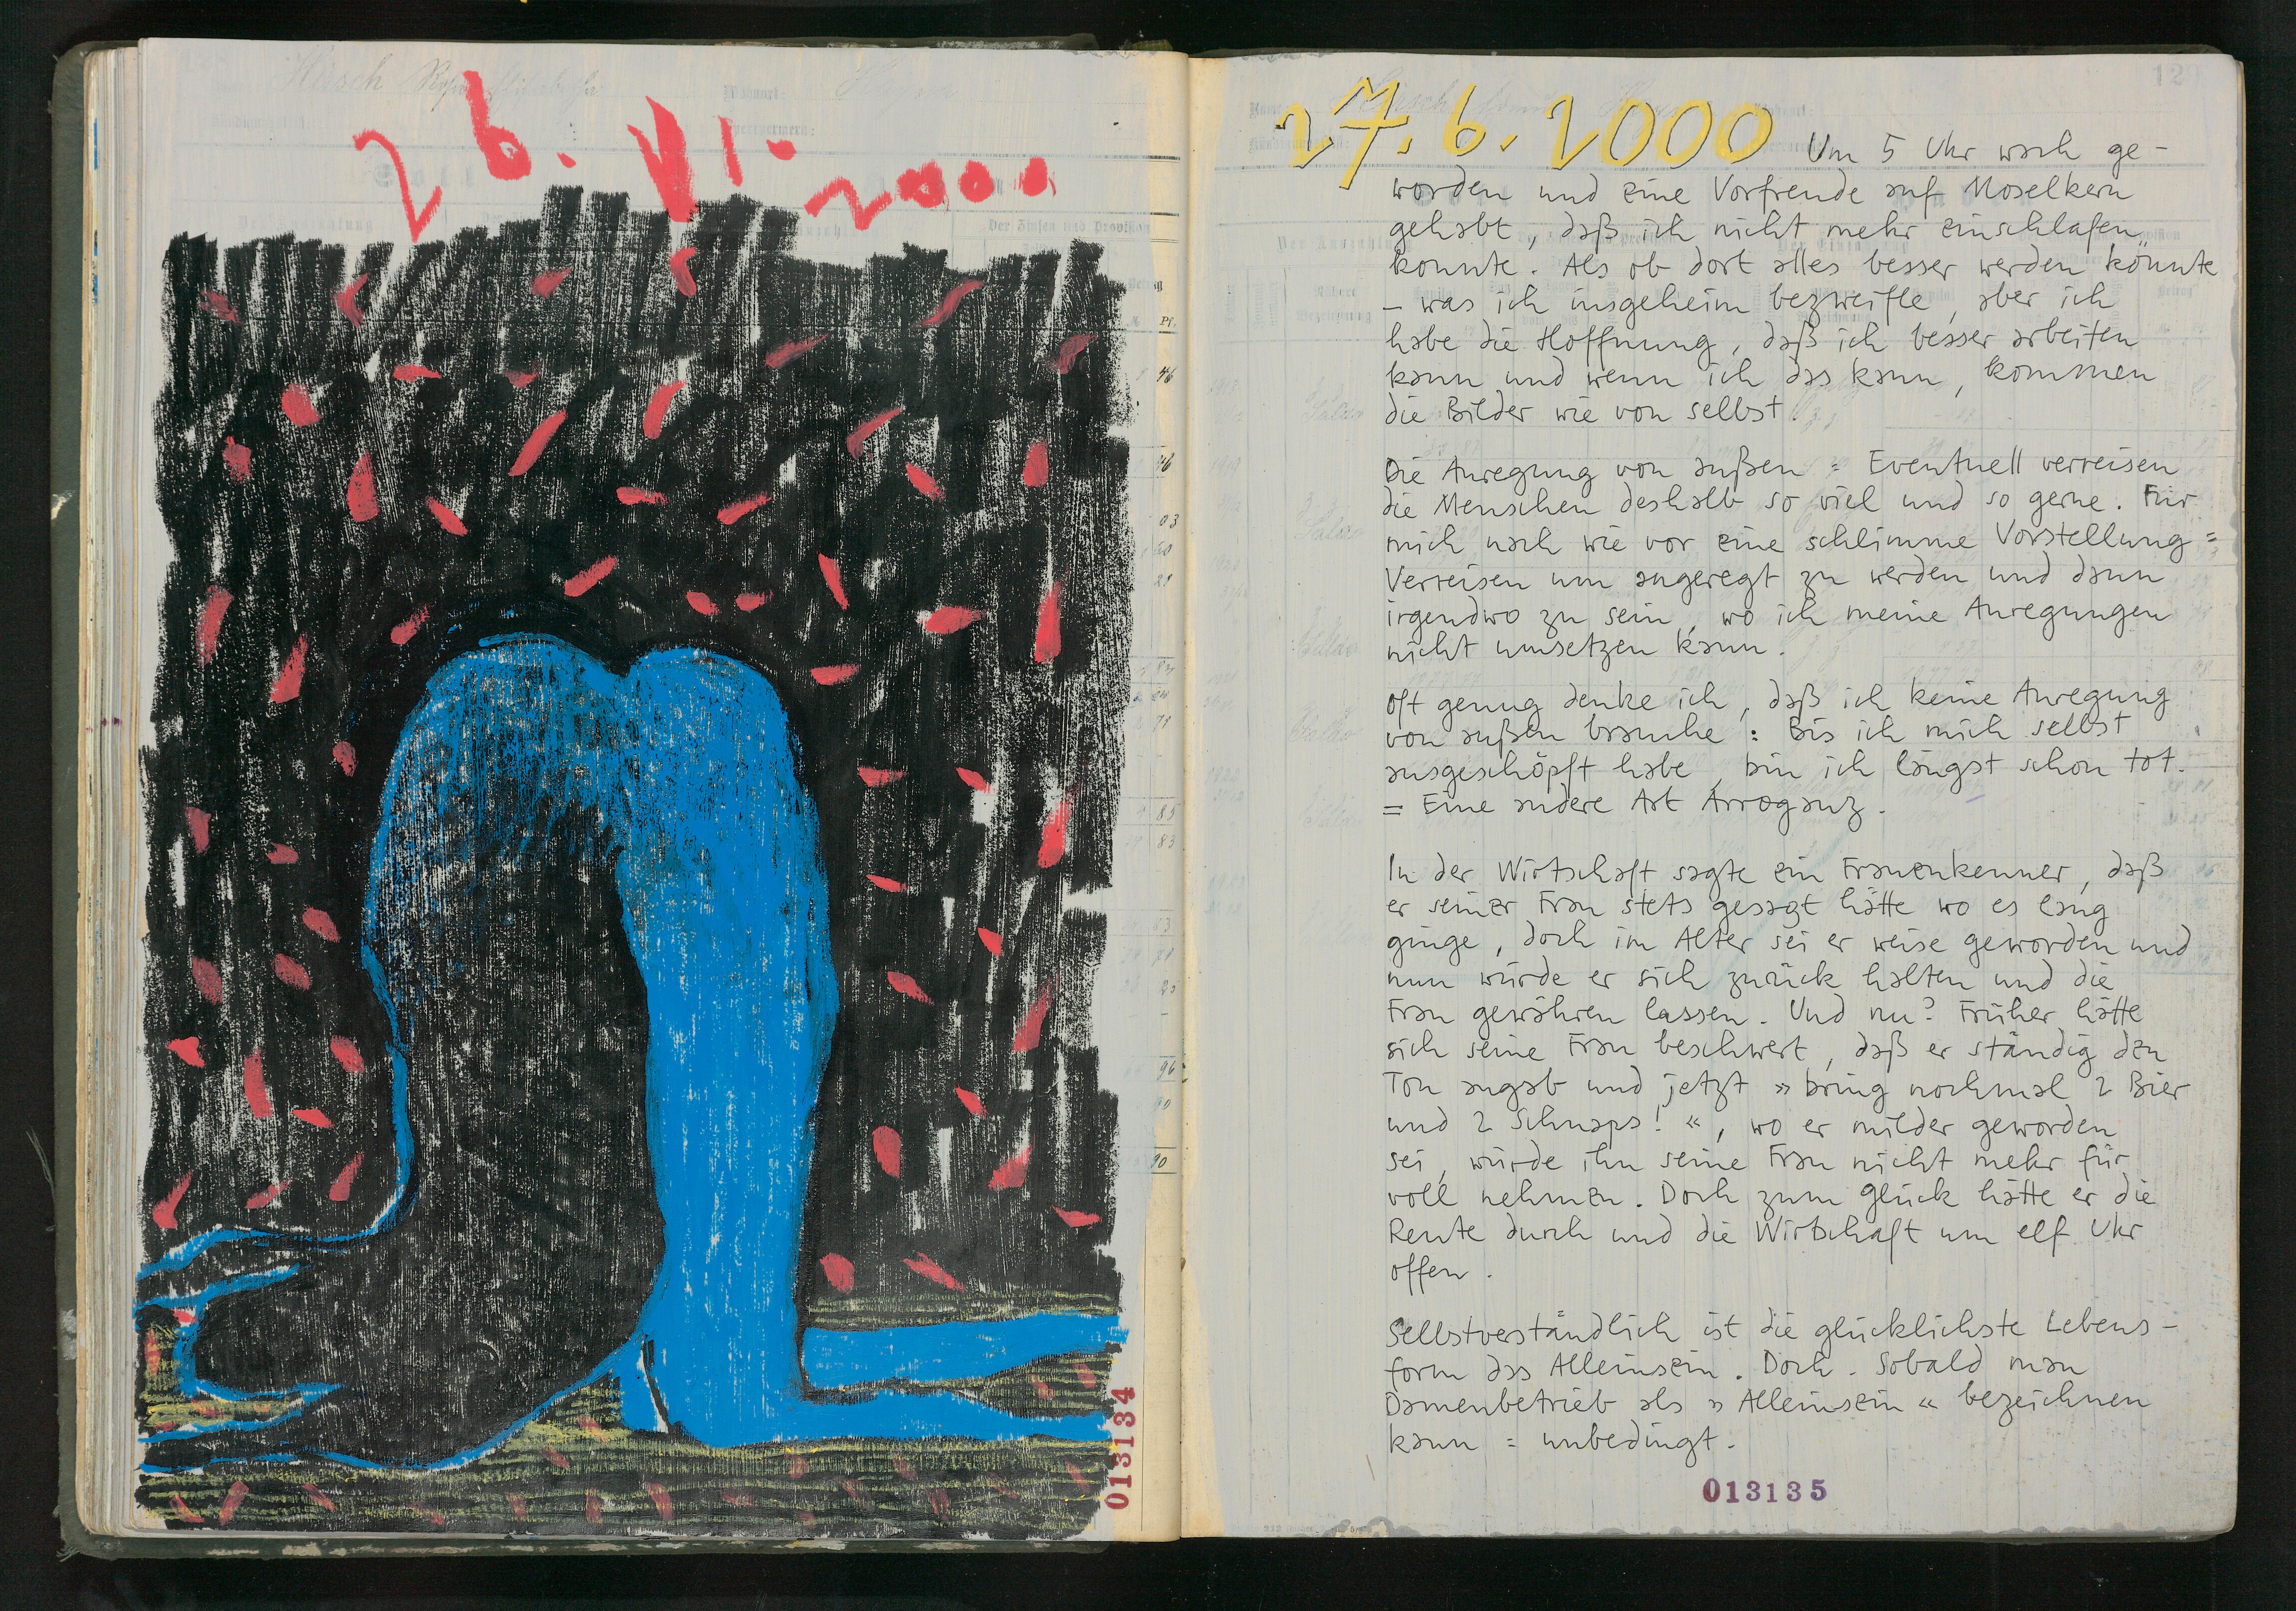 26. VI. 2000
Pf.
46
46
03
83
85
83
53
96
90
013134
27.6.2000 Um 5 Uhr wach ge-
worden und eine Vorfreude auf Moselkern
gehabt, daß ich nicht mehr einschlafen
konnte. Als ob dort alles besser werden könnte
– was ich insgeheim bezweifle, aber ich
habe die Hoffnung, daß ich besser arbeiten
kann und wenn ich das kann, kommen
die Bilder wie von selbst.
Die Anregung von außen = Eventuell verreisen
die Menschen deshalb so viel und so gerne. Für
mich nach wie vor eine schlimme Vorstellung =
Verreisen um angeregt zu werden und dann
irgendwo zu sein, wo ich meine Anregungen
nicht umsetzen kann.
Oft genug denke ich, daß ich keine Anregung
von außen brauche : Bis ich mich selbst
ausgeschöpft habe, bin ich längst schon tot.
= Eine andere Art Arroganz.
In der Wirtschaft sagte ein Frauenkenner, daß
er seiner Frau stets gesagt hätte wo es lang
ginge, doch im Alter sei er weise geworden und
nun würde er sich zurück halten und die
Frau gewähren lassen. Und nu? Früher hätte
sich seine Frau beschwert, daß er ständig den
Ton angab und jetzt »bring nochmal 2 Bier
und 2 Schnaps!«, wo er milder geworden
sei, würde ihn seine Frau nicht mehr für
voll nehmen. Doch zum Glück hätte er die
Rente durch und die Wirtschaft um elf Uhr
offen.
Selbstverständlich ist die glücklichste Lebens-
form das Alleinsein. Doch. Sobald man
Damenbetrieb als »Alleinsein« bezeichnen
kann = unbedingt.
013135